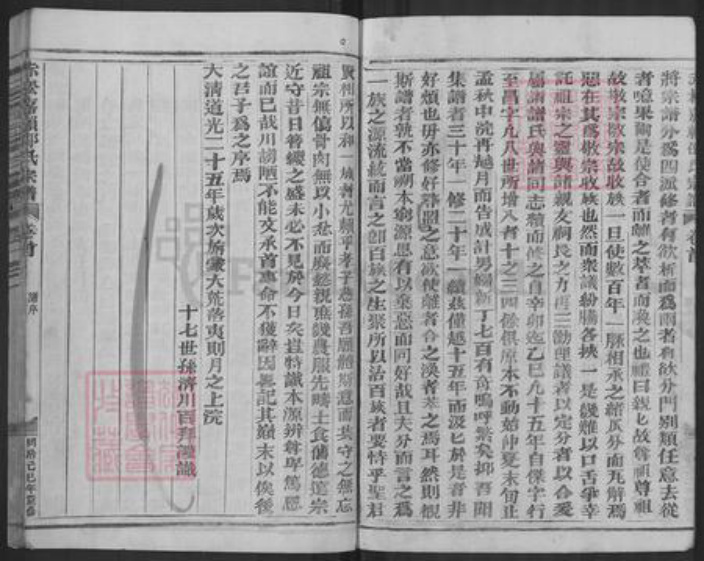 將宗譜分為四派修者有欲析而為兩者有欲分門別類任意去從
者噫果爾是使合者而離之萃者而渙之也禮曰親親故尊祖尊祖
故敬宗敬宗故收族一旦使數百年一脈相承之緒瓜分而瓦解焉
惡在其為敬宗收族也然而眾議紛騰各挾一是幾難以口舌爭幸
託祖宗之靈與諸親友祠長之力再三勸理議者以定分者以合爰
屬諸譜氏與諸同志續而修之自辛卯迄乙巳凡十五年自保字行
至昌字凡八世所增入者十之三四餘俱原本不動始仲夏末旬止
孟秋中浣再越月而告成計男婦新丁七百有奇嗚呼繁矣抑吾聞
集譜者三十年一修二十年一續茲僅越十五年而汲汲於是者非
好煩也毋亦修好尋盟之意欲使離者合之渙者萃之焉耳然則觀
斯譜者孰不當溯本窮源思有以棄惡而同好哉且夫分而言之為
一族之源流統而言之即百族之生聚所以治百族者要恃乎聖君
賢相所以和一族者尤賴乎孝子慈孫吾願將斯意而共守之無忘
祖宗無傷骨肉無以小忿而廢懿親庶幾農服先疇士食舊德篤宗
近守昔日簪纓之盛未必不見於今日矣豈特識本源辨尊卑篤恩
誼而已哉川謭陋不能文承首事命不獲辭因謹記其巔末以俟後
之君子為之序焉
大清道光二十五年歲次旃蒙大荒落夷則月之上浣
十七世孫濟川百拜謹識
宗譜
卷首
譜序
同治己巳年重修